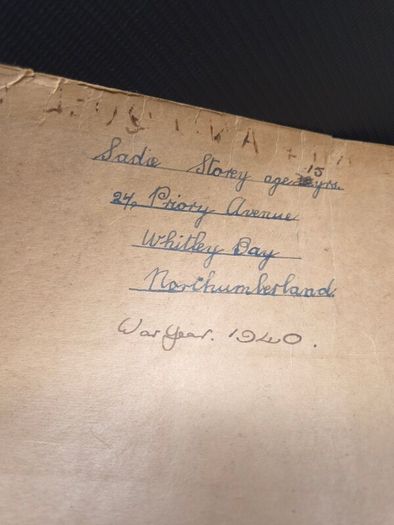 Sadie Storey age 15 yrs.
27, Priory Avenue
Whitley Bay
Northumberland.
War Year. 1940.